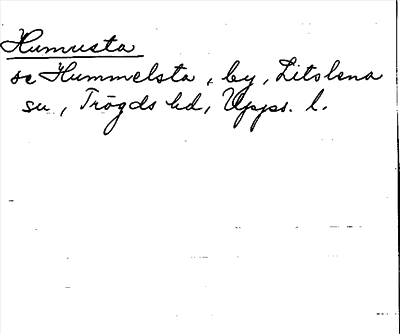 Humusta
se Hummelsta, by, Litslena
sn, Trögds hd, Upps. l.